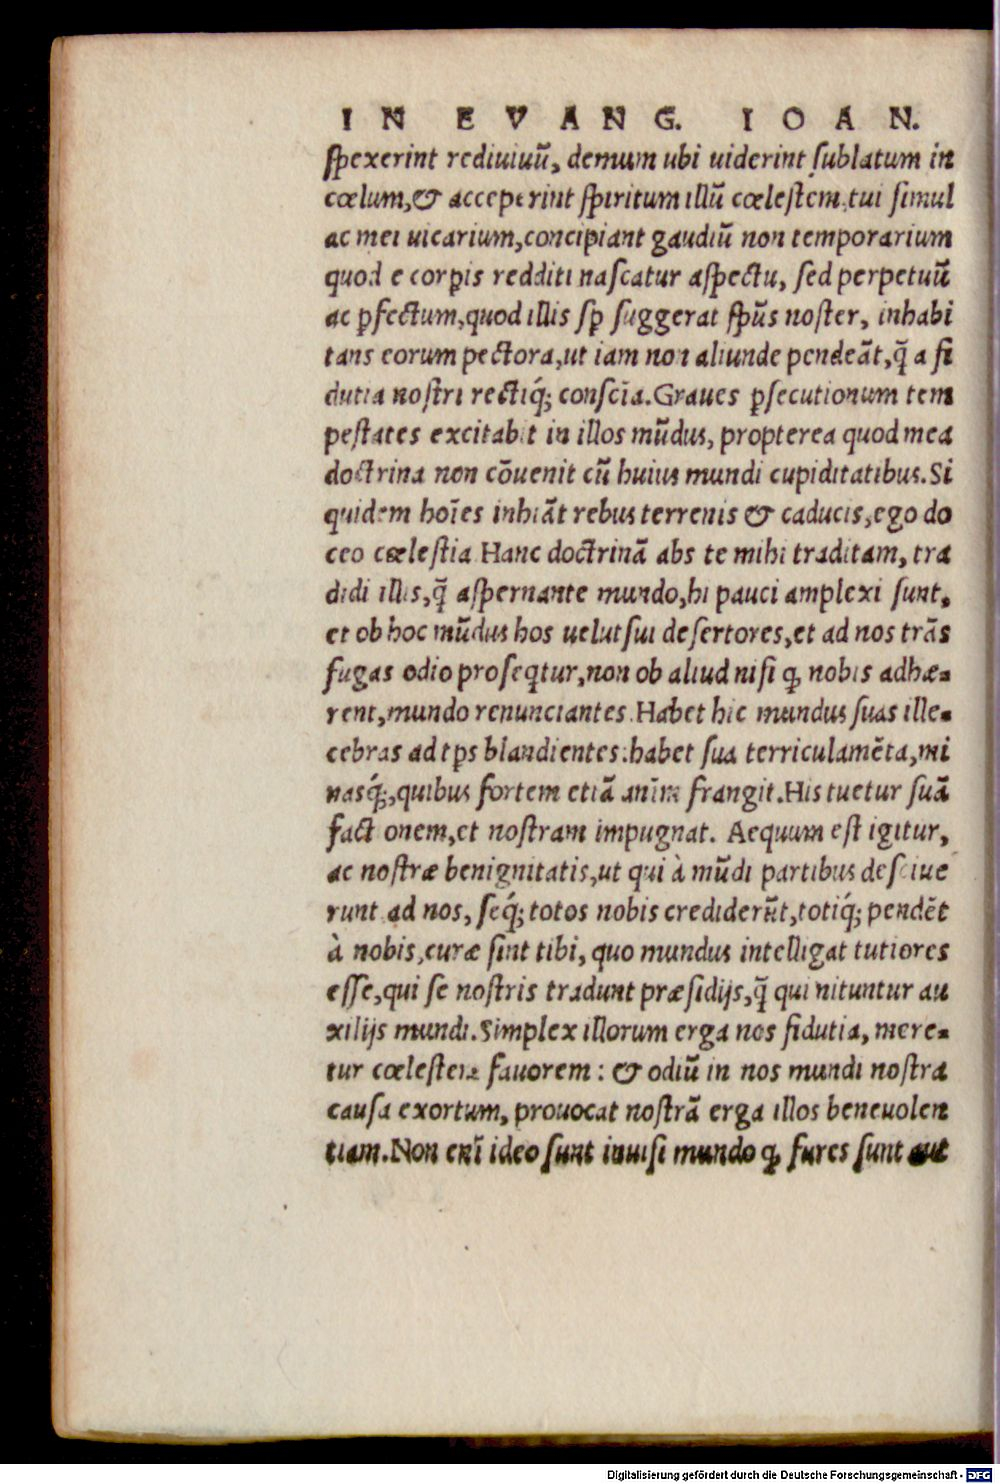 IN EVANG. IOAN.
spexerint rediuiuũ, demum ubi uiderint sublatum in
cœlum,& acceperint spiritum illũ cœlestem, tui simul
ac mei uicarium,concipiant gaudiũ non temporarium
quod e corꝑis redditi nascatur aspectu, sed perpetuũ
ac ꝑfectum,quod illis sꝑ suggerat spũs noster, inhabi
tans eorum pectora,ut iam non aliunde pendeãt,q̃ a fi
dutia nostri rectiq́; consciã.Graues ꝑsecutionum tem
pestates excitabit in illos mũdus, propterea quod mea
doctrina non cõuenit cũ huius mundi cupiditatibus.Si
quidem hoĩes inhiãt rebus terrenis & caducis,ego do
ceo cœlestia.Hanc doctrinã abs te mihi traditam, tra
didi illis,q̃ aspernante mundo,hi pauci amplexi sunt,
et ob hoc mũdus hos uelut sui desertores,et ad nos trãs
fugas odio proseqtur,non ob aliud nisi ꝙ nobis adhæ-
rent,mundo renunciantes.Habet hic mundus suas ille-
cebras ad tꝑs blandientes:habet sua terriculamẽta,mi
nasq́;,quibus fortem etiã anĩm frangit.His tuetur suã
factionem,et nostram impugnat. Aequum est igitur,
ac nostræ benignitatis,ut qui à mũdi partibus desciue
runt ad nos, seq́; totos nobis crediderũt,totiq́; pendẽt
à nobis,curæ sint tibi, quo mundus intelligat tutiores
esse,qui se nostris tradunt præsidijs,q̃ qui nituntur au
xilijs mundi.Simplex illorum erga nos fidutia, mere-
tur cœlestem fauorem: & odiũ in nos mundi nostra
causa exortum, prouocat nostrã erga illos beneuolen
tiam.Non enĩ ideo sunt inuisi mundo ꝙ fures sunt aut
Digitalisierung gefördert durch die Deutsche Forschungsgemeinschaft - DFG